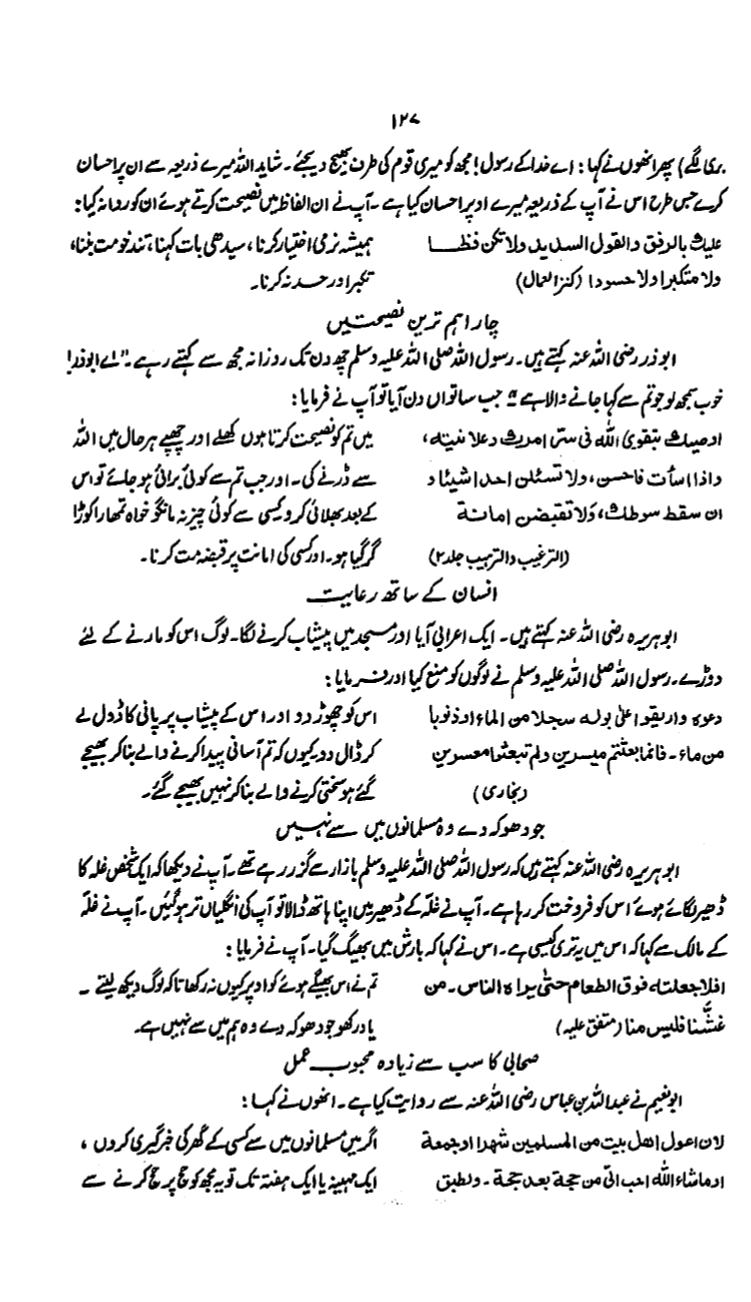 ۱۲۷
بری لگے) پھر انھوں نے کہا: اے خدا کے رسول! مجھ کو میری قوم کی طرف بھیج دیجئے۔ شاید اللہ میرے ذریعہ سے ان پر احسان
کرے جس طرح اس نے آپ کے ذریعہ میرے اوپر احسان کیا ہے۔ آپ نے ان الفاظ میں نصیحت کرتے ہوئے ان کو روانہ کیا:
علیك بالرفق والقول السدید ولا تکن فظا ہمیشہ نرمی اختیار کرنا، سیدھی بات کہنا، تند خو مت بننا،
ولا متکبرا ولا حسودا (کنز العمال) تکبر اور حسد نہ کرنا۔
چار اہم ترین نصیحتیں
ابوذر رضی اللہ عنہ کہتے ہیں۔ رسول اللہ صلی اللہ علیہ وسلم چھ دن تک روزانہ مجھ سے کہتے رہے۔ "اے ابوذر!
خوب سمجھ لو جو تم سے کہا جانے والا ہے" جب ساتواں دن آیا تو آپ نے فرمایا:
اوصیك بتقوی اللہ فی سر امرك وعلانیته، میں تم کو نصیحت کرتا ہوں کھلے اور چھپے ہر حال میں اللہ
واذا اسأت فاحسن، ولا تسئلن احدا شیئا و سے ڈرنے کی۔ اور جب تم سے کوئی برائی ہو جائے تو اس
ان سقط سوطك، ولا تقبضن امانة کے بعد بھلائی کرو کسی سے کوئی چیز نہ مانگو خواہ تمھارا کوڑا
(الترغیب والترہیب جلد ۲) گر گیا ہو۔ اور کسی کی امانت پر قبضہ مت کرنا۔
انسان کے ساتھ رعایت
ابو ہریرہ رضی اللہ عنہ کہتے ہیں۔ ایک اعرابی آیا اور مسجد میں پیشاب کرنے لگا۔ لوگ اس کو مارنے کے لئے
دوڑے۔ رسول اللہ صلی اللہ علیہ وسلم نے لوگوں کو منع کیا اور فرمایا:
دعوہ واریقوا علی بوله سجلا من الماء او ذنوبا اس کو چھوڑ دو اور اس کے پیشاب پر پانی کا ڈول لے
من ماء۔ فانما بعثتم میسرین ولم تبعثوا معسرین کر ڈال دو۔ کیوں کہ تم آسانی پیدا کرنے والے بنا کر بھیجے
(بخاری) گئے ہو سختی کرنے والے بنا کر نہیں بھیجے گئے۔
جو دھوکہ دے وہ مسلمانوں میں سے نہیں
ابو ہریرہ رضی اللہ عنہ کہتے ہیں کہ رسول اللہ صلی اللہ علیہ وسلم بازار سے گزر رہے تھے۔ آپ نے دیکھا کہ ایک شخص غلہ کا
ڈھیر لگائے ہوئے اس کو فروخت کر رہا ہے۔ آپ نے غلّہ کے ڈھیر میں اپنا ہاتھ ڈالا تو آپ کی انگلیاں تر ہو گئیں۔ آپ نے غلّہ
کے مالک سے کہا کہ اس میں یہ تری کیسی ہے۔ اس نے کہا کہ بارش میں بھیگ گیا۔ آپ نے فرمایا:
افلا جعلته فوق الطعام حتی یراہ الناس۔ من تم نے اس بھیگے ہوئے کو اوپر کیوں نہ رکھا تاکہ لوگ دیکھ لیتے۔
غشّنا فلیس منا (متفق علیہ) یاد رکھو جو دھوکہ دے وہ ہم میں سے نہیں ہے۔
صحابی کا سب سے زیادہ محبوب عمل
ابو نعیم نے عبد اللہ بن عباس رضی اللہ عنہ سے روایت کیا ہے۔ انھوں نے کہا:
لان اعول اھل بیت من المسلمین شھرا او جمعة اگر میں مسلمانوں میں سے کسی کے گھر کی خبرگیری کروں،
او ما شاء اللہ احب الیّ من حجة بعد حجة۔ ولطبق ایک مہینہ یا ایک ہفتہ تک تو یہ مجھ کو حج پر حج کرنے سے